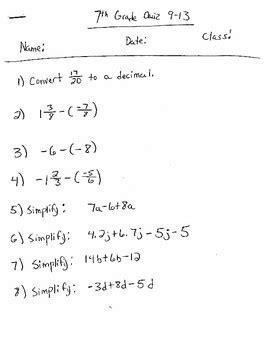 7th Grade Quiz 9-13
Name: Date: Class:
1) Convert 17/20 to a decimal.
2) 1 3/8 - (-7/8)
3) -6 - (-8)
4) -1 2/3 - (-5/6)
5) Simplify: 7a-6+8a
6) Simplify: 4.2j+6.7j-5j-5
7) Simplify: 14b+6b-12
8) Simplify: -3d+8d-5d